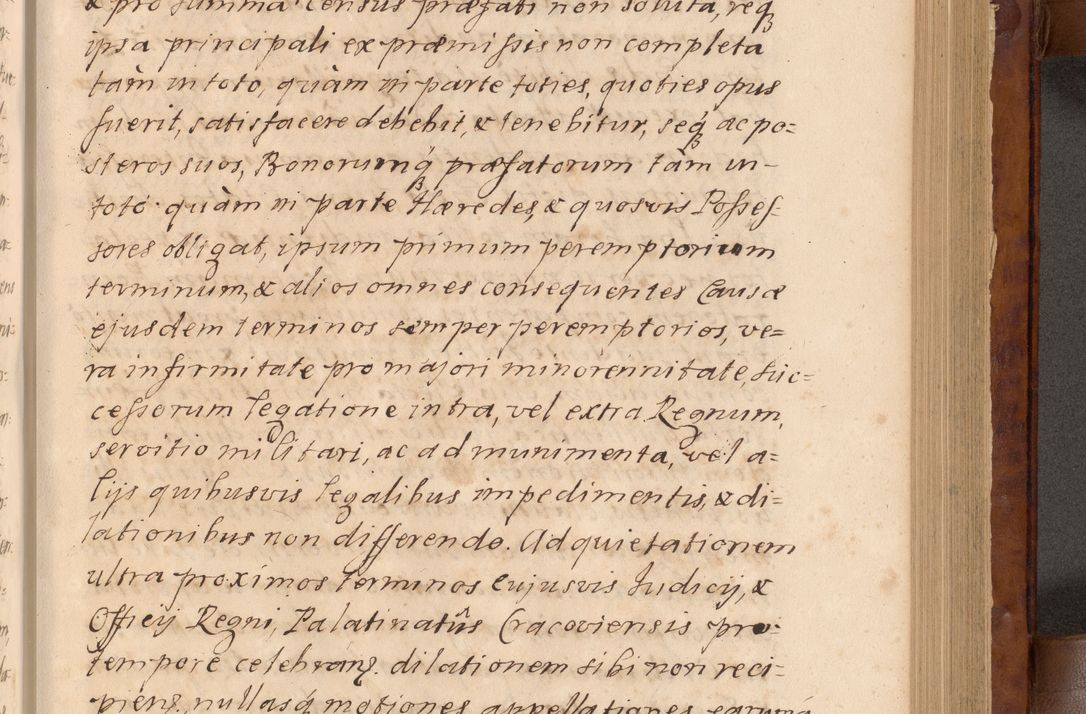 & pro summa Census præfati non soluta, req₃
ipsa principali ex præmissis non completa
tàm in toto, quàm in parte toties, quoties opus
fuerit, satisfacere debebit, & tenebitur, seq₃ ac po=
steros suos, Bonorumq́₃ præfatorum tàm in-
toto quàm in parte Hæredes, & quosvis Posses-
sores obligat, ipsum primum peremptorium
terminum, & alios omnes consequentes Causæ
ejusdem terminos semper peremptorios, ve=
ra infirmitate pro majori minorennitate, Suc=
cessorum legatione intra, vel extra Regnum,
servitio militari, ac ad munimenta, vel a=
lijs quibusvis legalibus impedimentis, & di=
lationibus non differendo. Ad quietationem
ultra proximos terminos cujusvis Judicij, &
Officij Regni, Palatinatûs Cracoviensis pro
tempore celebranꝫ. dilationem sibi non reci-
pienꝫ. nullasq́ motiones appellationes earumq́